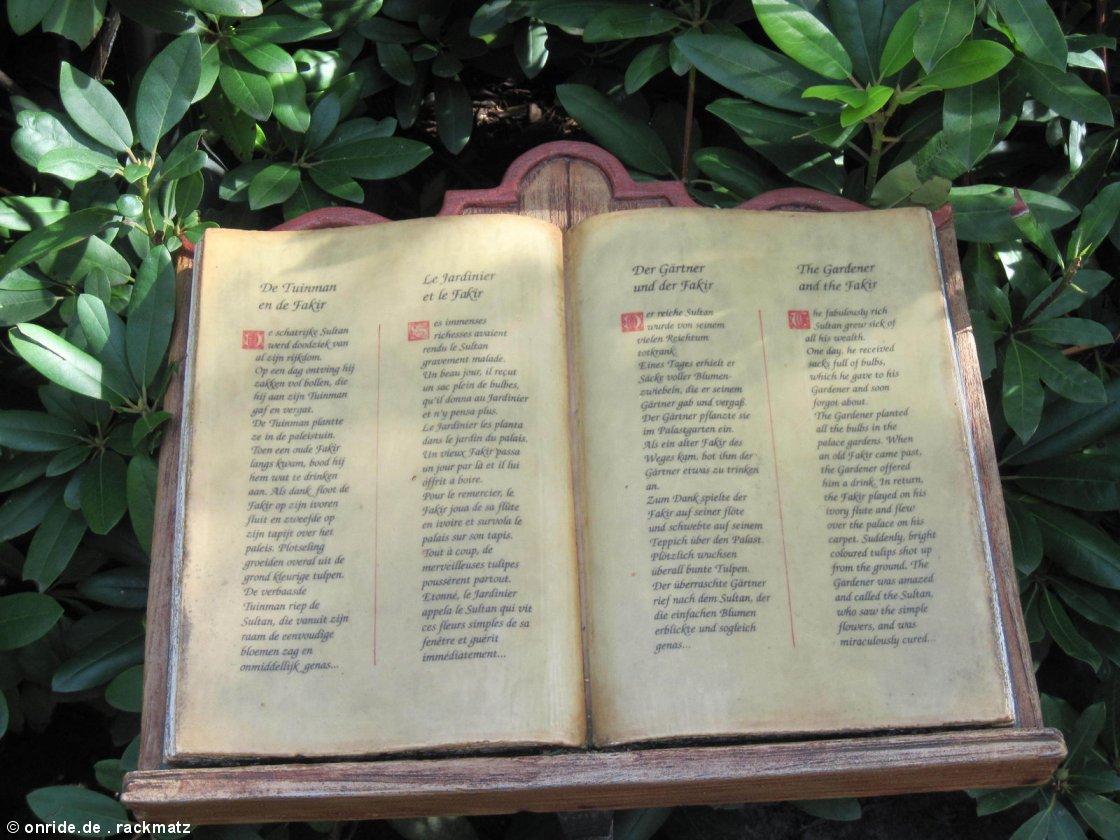 De Tuinman
en de Fakir
De schatrijke Sultan
werd doodziek van
al zijn rijkdom.
Op een dag ontving hij
zakken vol bollen, die
hij aan zijn Tuinman
gaf en vergat.
De Tuinman plantte
ze in de paleistuin.
Toen een oude Fakir
langs kwam, bood hij
hem wat te drinken
aan. Als dank floot de
Fakir op zijn ivoren
fluit en zweefde op
zijn tapijt over het
paleis. Plotseling
groeiden overal uit de
grond kleurige tulpen.
De verbaasde
Tuinman riep de
Sultan, die vanuit zijn
raam de eenvoudige
bloemen zag en
onmiddellijk genas...
Le Jardinier
et le Fakir
Ses immenses
richesses avaient
rendu le Sultan
gravement malade.
Un beau jour, il reçut
un sac plein de bulbes,
qu'il donna au Jardinier
et n'y pensa plus.
Le Jardinier les planta
dans le jardin du palais.
Un vieux Fakir passa
un jour par là et il lui
offrit à boire.
Pour le remercier, le
Fakir joua de sa flûte
en ivoire et survola le
palais sur son tapis.
Tout à coup, de
merveilleuses tulipes
poussèrent partout.
Etonné, le Jardinier
appela le Sultan qui vit
ces fleurs simples de sa
fenêtre et guérit
immédiatement...
Der Gärtner
und der Fakir
Der reiche Sultan
wurde von seinem
vielen Reichtum
totkrank.
Eines Tages erhielt er
Säcke voller Blumen-
zwiebeln, die er seinem
Gärtner gab und vergaß.
Der Gärtner pflanzte sie
im Palastgarten ein.
Als ein alter Fakir des
Weges kam, bot ihm der
Gärtner etwas zu trinken
an.
Zum Dank spielte der
Fakir auf seiner flöte
und schwebte auf seinem
Teppich über den Palast.
Plötzlich wuchsen
überall bunte Tulpen.
Der überraschte Gärtner
rief nach dem Sultan, der
die einfachen Blumen
erblickte und sogleich
genas...
The Gardener
and the Fakir
The fabulously rich
Sultan grew sick of
all his wealth.
One day, he received
sacks full of bulbs,
which he gave to his
Gardener and soon
forgot about.
The Gardener planted
all the bulbs in the
palace gardens. When
an old Fakir came past,
the Gardener offered
him a drink. In return,
the Fakir played on his
ivory flute and flew
over the palace on his
carpet. Suddenly, bright
coloured tulips shot up
from the ground. The
Gardener was amazed
and called the Sultan,
who saw the simple
flowers, and was
miraculously cured...
© onride.de . rackmatz